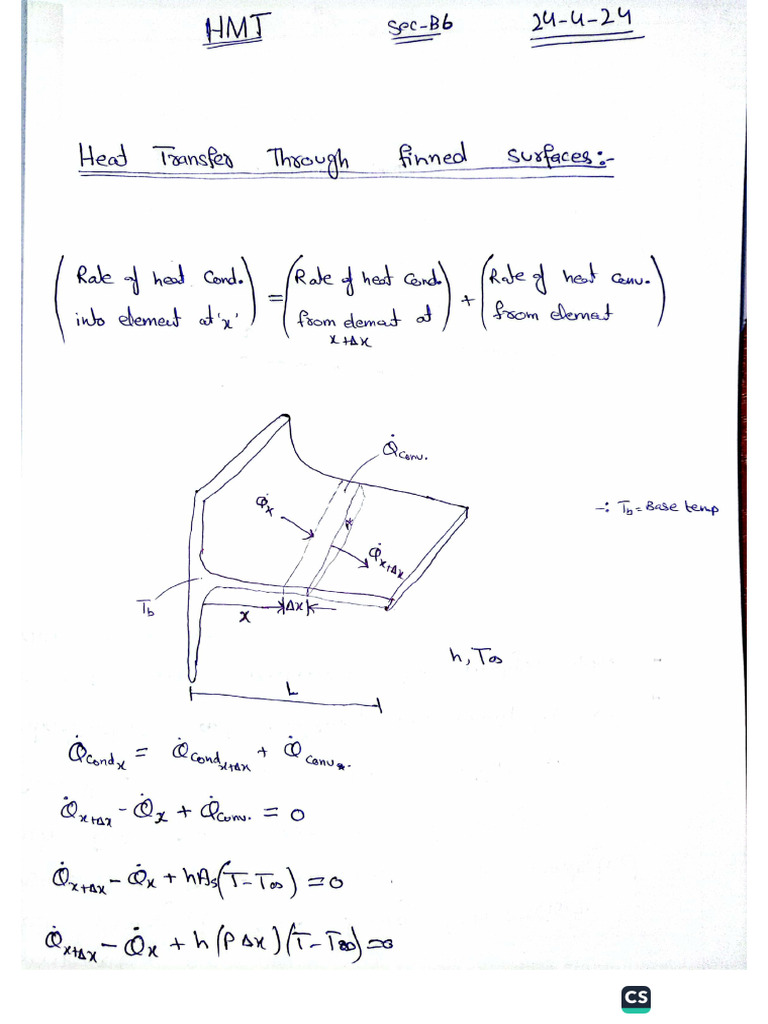 HMT Sec-B6 24-4-24
Heat Transfer Through finned surfaces:-
(Rate of heat Cond. into element at 'x') = (Rate of heat Cond. from element at x+Δx) + (Rate of heat Conv. from element)
Q̇conv.
Q̇x
-: Tb = Base temp
Q̇x+Δx
Tb
x
Δx
h, T∞
L
Q̇Cond x = Q̇Cond x+Δx + Q̇Conv.
Q̇x+Δx - Q̇x + Q̇Conv. = 0
Q̇x+Δx - Q̇x + hAs(T-T∞) = 0
Q̇x+Δx - Q̇x + h(PΔx)(T-T∞) = 0
CS